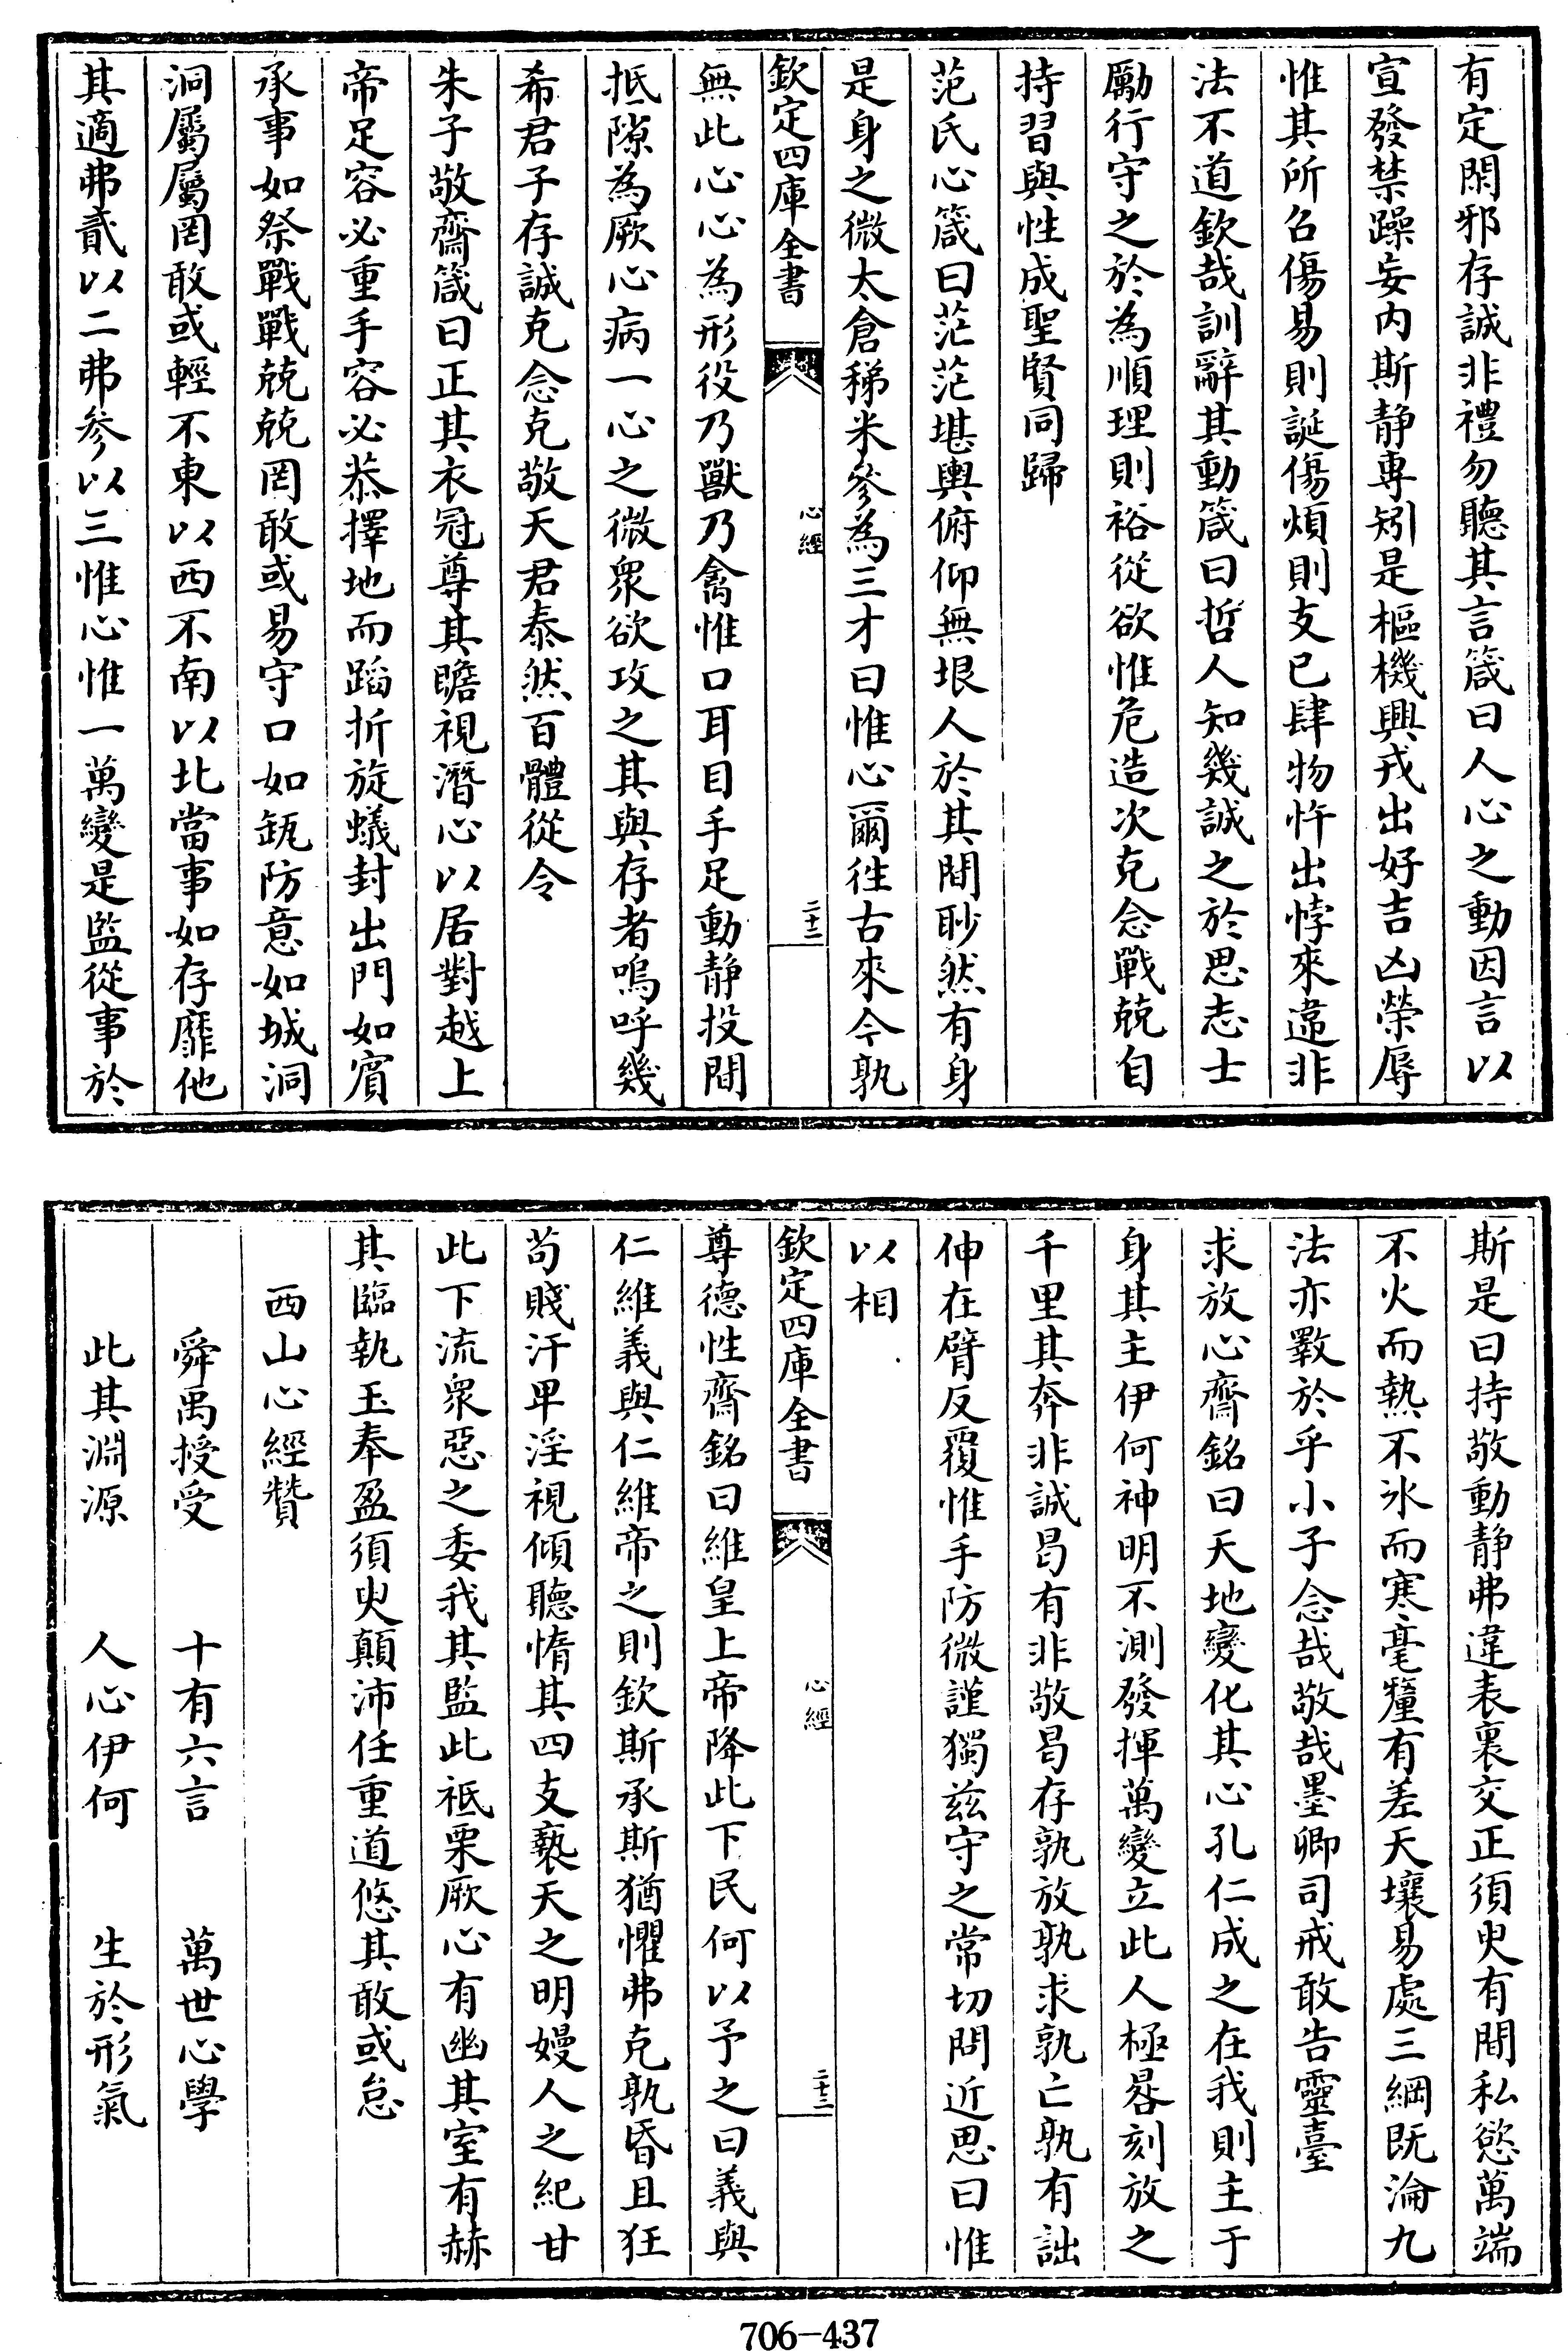 有定閑邪存誠非禮勿聽其言箴曰人心之動因言以
宣發禁躁妄內斯静專矧是樞機興戎出好吉凶榮辱
惟其所召傷易則誕傷煩則支已肆物忤出悖來違非
法不道欽哉訓辭其動箴曰哲人知幾誠之於思志士
勵行守之於為順理則裕從欲惟危造次克念戰兢自
持習與性成聖賢同歸
范氏心箴曰茫茫堪輿俯仰無垠人於其間眇然有身
是身之微太倉稊米參為三才曰惟心爾徃古來今孰
欽定四庫全書
心經
二十二
無此心心為形役乃獸乃禽惟口耳目手足動静投間
抵隙為厥心病一心之微衆欲攻之其與存者嗚呼幾
希君子存誠克念克敬天君泰然百體從令
朱子敬齋箴曰正其衣冠尊其瞻視潛心以居對越上
帝足容必重手容必恭擇地而蹈折旋蟻封出門如賓
承事如祭戰戰兢兢罔敢或易守口如缾防意如城洞
洞屬屬罔敢或輕不東以西不南以北當事如存靡他
其適弗貳以二弗參以三惟心惟一萬變是監從事於
斯是曰持敬動静弗違表裏交正須臾有間私慾萬端
不火而熱不氷而寒毫釐有差天壤易處三綱既淪九
法亦斁於乎小子念哉敬哉墨卿司戒敢告靈臺
求放心齋銘曰天地變化其心孔仁成之在我則主于
身其主伊何神明不測發揮萬變立此人極晷刻放之
千里其奔非誠曷有非敬曷存孰放孰求孰亡孰有詘
伸在臂反覆惟手防微謹獨兹守之常切問近思曰惟
以相
欽定四庫全書
心經
二十三
尊德性齋銘曰維皇上帝降此下民何以予之曰義與
仁維義與仁維帝之則欽斯承斯猶懼弗克孰昏且狂
苟賤汙卑淫視傾聽惰其四支褻天之明嫚人之紀甘
此下流衆惡之委我其監此祗栗厥心有幽其室有赫
其臨執玉奉盈須臾顛沛任重道悠其敢或怠
西山心經贊
舜禹授受　十有六言　萬世心學
此其淵源　人心伊何　生於形氣
706-437